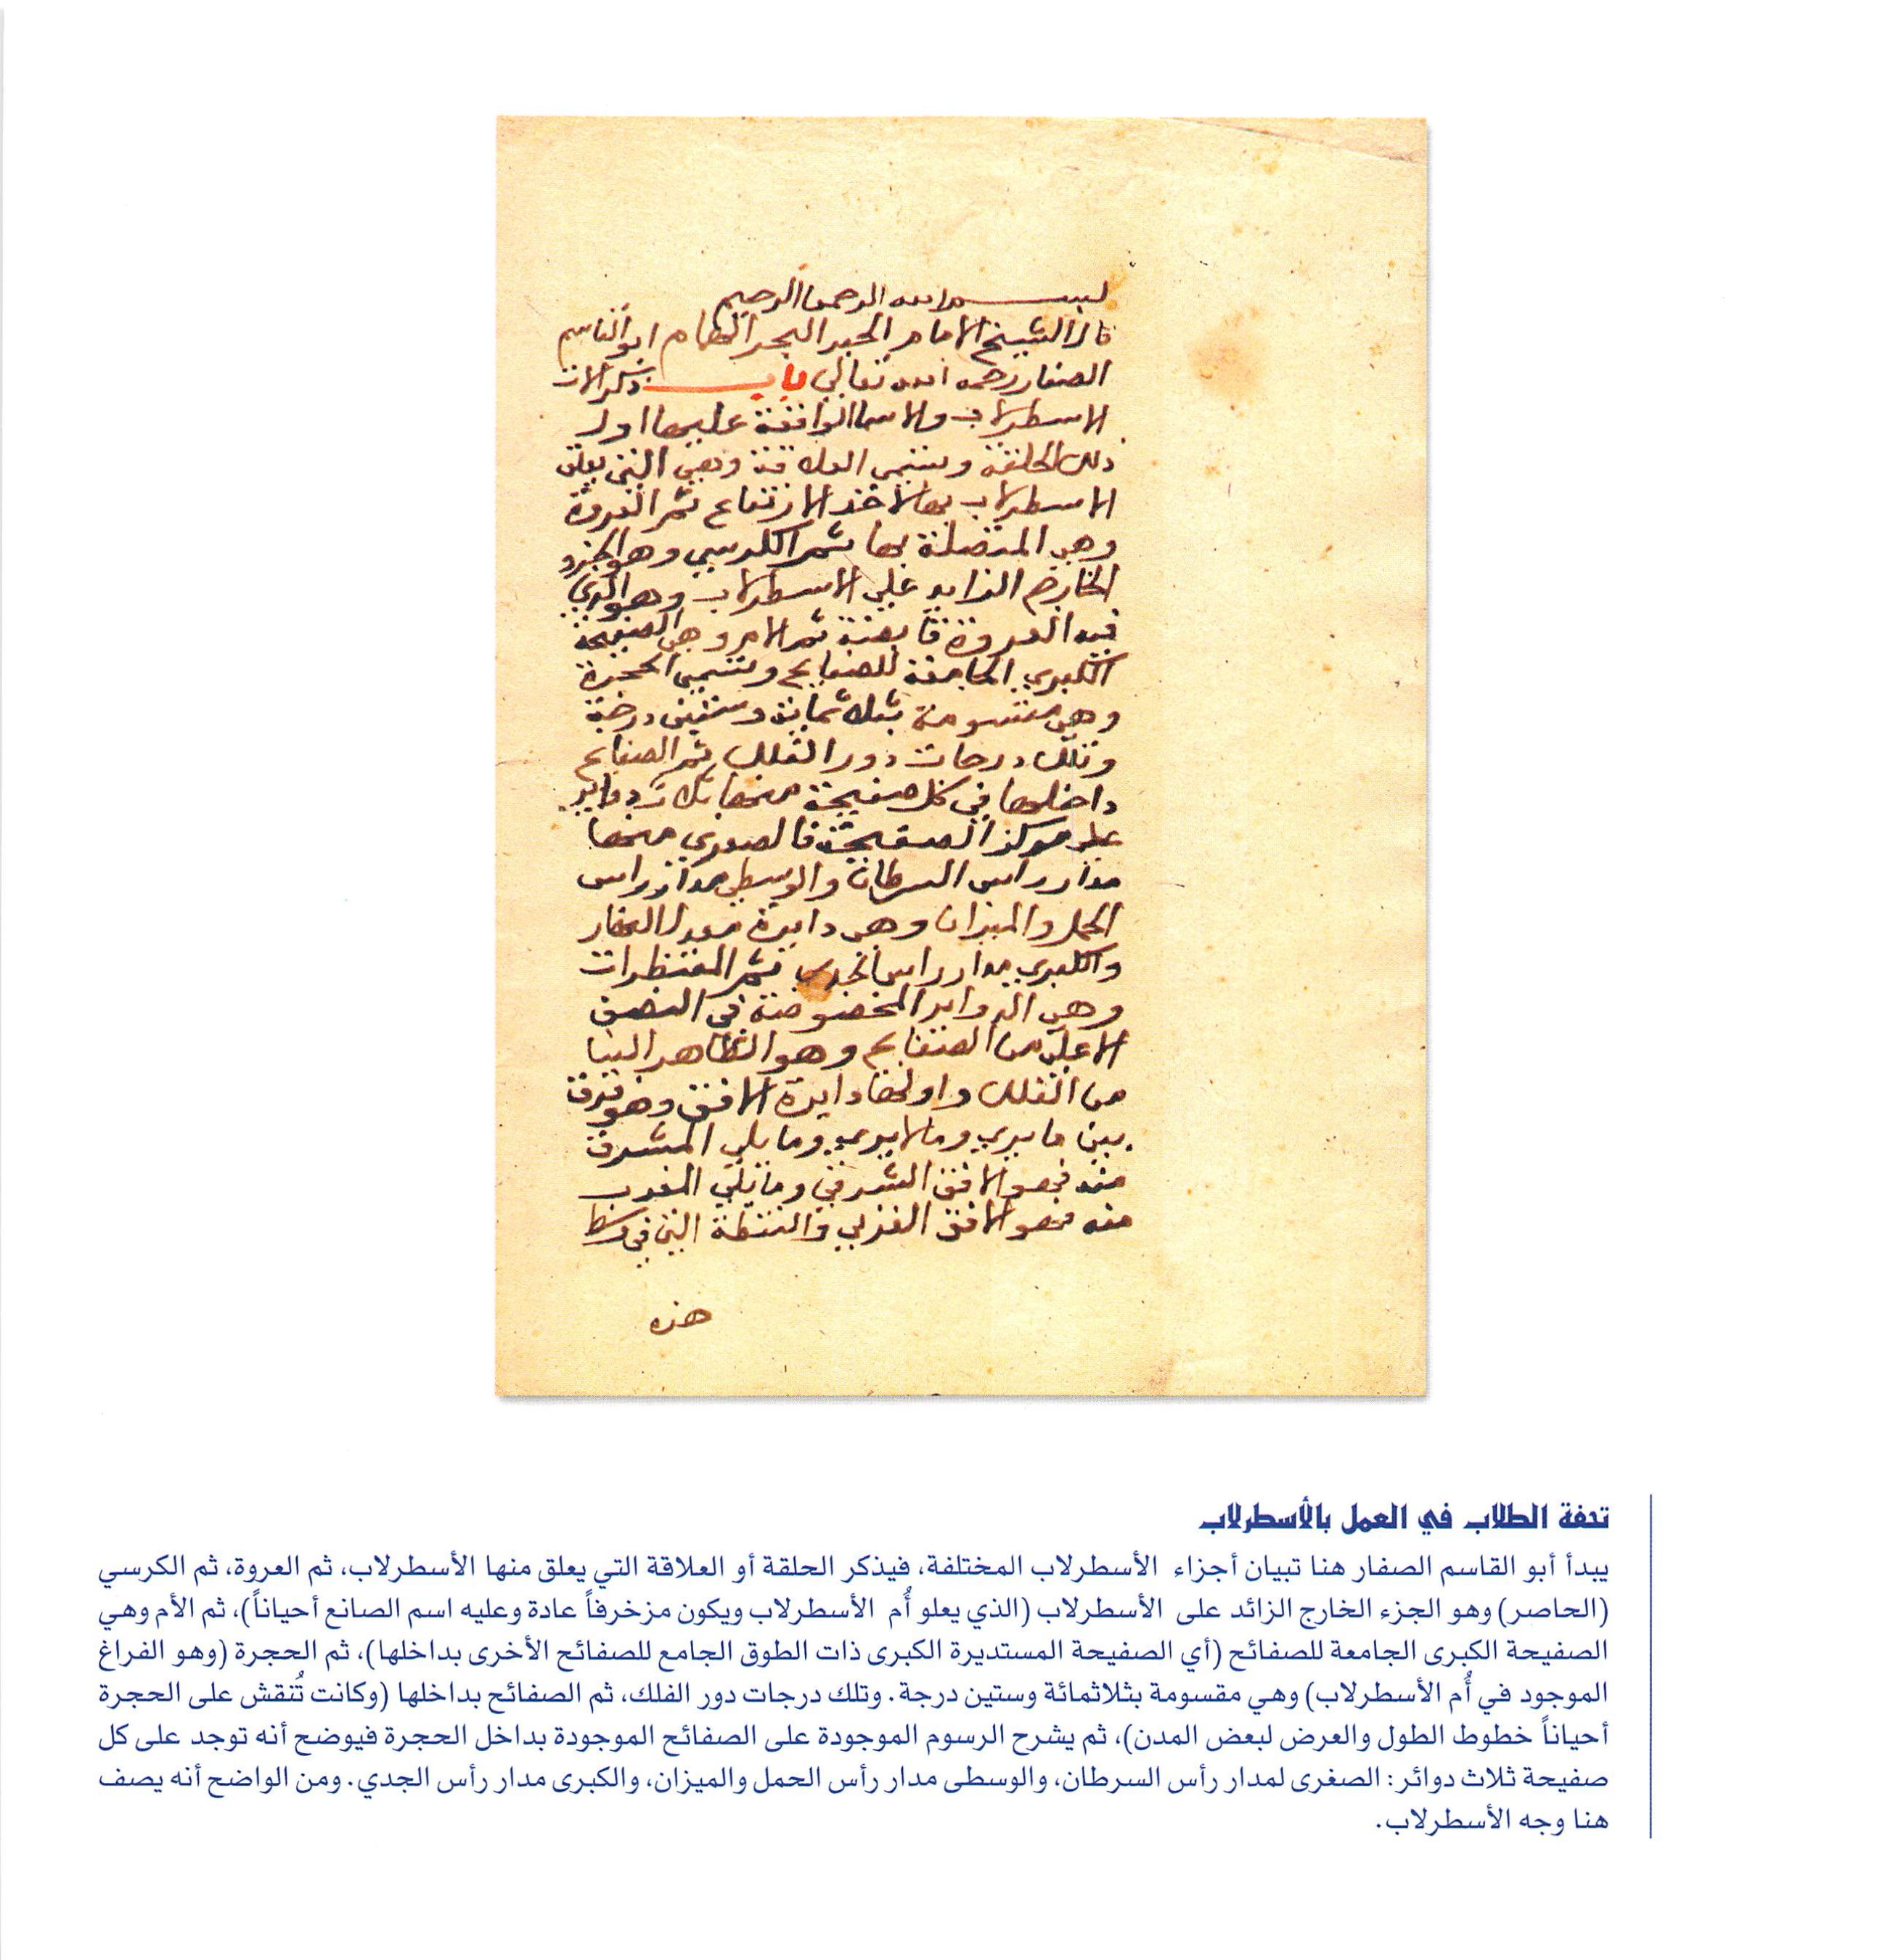 بسم الله الرحمن الرحيم
قال الشيخ الامام الحبر البحر الهمام ابو القاسم
الصفار رحمه الله تعالي باب ذكر الات
الاسطرلاب والاسما الواقعة عليها اول
ذلك الحلقة وتسمي العلاقة وهي التي يعلق
الاسطرلاب بها لاخذ الارتفاع ثم العروة
وهي المتصلة بها ثم الكرسي وهو الجزو
الخارج الزايد علي الاسطرلاب وهو الذي
فيه العروة ثم الام وهي الصفيحة
الكبري الجامعة للصفايح وتسمي الحجرة
وهي مقسومة بثلاثماية وستين درجة
وتلك درجات دور الفلك ثم الصفايح
داخلها في كل صفيحة منها ثلاث دواير
علي مركز الصفيحة فالصغري منها
مدار راس السرطان والوسطي مدار راس
الحمل والميزان وهي دايرة معدل النهار
والكبري مدار راس الجدي ثم المقنطرات
وهي الدواير المخصوصة في النصف
الاعلي من الصفايح وهو الظاهر الينا
من الفلك واولها دايرة الافق وهو فرق
بين ما يري وما لا يري وما يلي المشرق
منه فهو الافق الشرقي وما يلي المغرب
منه فهو الافق الغربي والنقطة التي في وسط
هذه
تحفة الطلاب في العمل بالأسطرلاب
يبدأ أبو القاسم الصفار هنا تبيان أجزاء الأسطرلاب المختلفة، فيذكر الحلقة أو العلاقة التي يعلق منها الأسطرلاب، ثم العروة، ثم الكرسي
(الحاصر) وهو الجزء الخارج الزائد على الأسطرلاب (الذي يعلو أُم الأسطرلاب ويكون مزخرفاً عادة وعليه اسم الصانع أحياناً)، ثم الأم وهي
الصفيحة الكبرى الجامعة للصفائح (أي الصفيحة المستديرة الكبرى ذات الطوق الجامع للصفائح الأخرى بداخلها)، ثم الحجرة (وهو الفراغ
الموجود في أُم الأسطرلاب) وهي مقسومة بثلاثمائة وستين درجة. وتلك درجات دور الفلك، ثم الصفائح بداخلها (وكانت تُنقش على الحجرة
أحياناً خطوط الطول والعرض لبعض المدن)، ثم يشرح الرسوم الموجودة على الصفائح الموجودة بداخل الحجرة فيوضح أنه توجد على كل
صفيحة ثلاث دوائر: الصغرى لمدار رأس السرطان، والوسطى مدار رأس الحمل والميزان، والكبرى مدار رأس الجدي. ومن الواضح أنه يصف
هنا وجه الأسطرلاب.